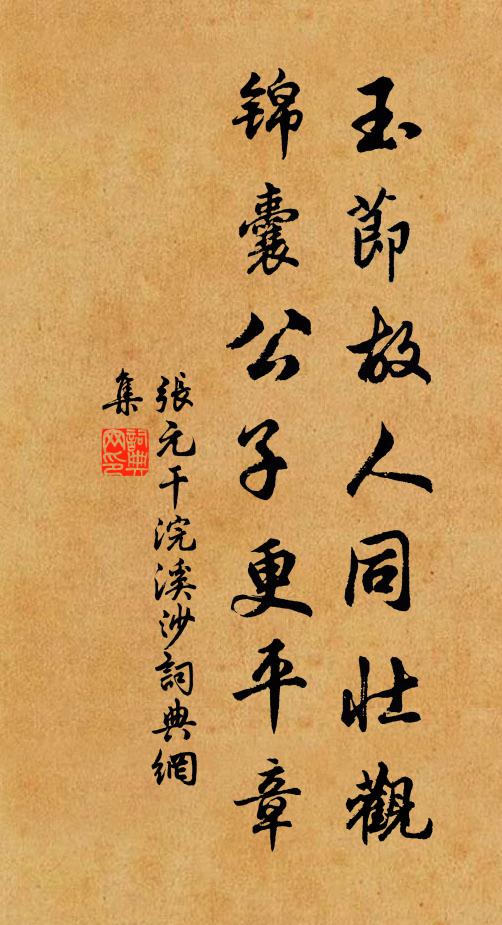 玉節故人同壯觀
錦囊公子更平章
張元干浣溪沙詞典網
集
詞典
網印